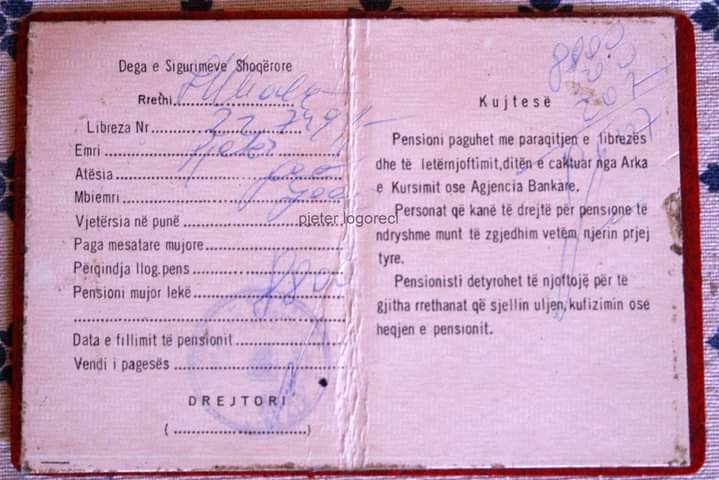 Dega e Sigurimeve Shoqërore
Rrethi
Libreza Nr.
Emri Pjetër
Atësia
Mbiemri
pjeter.logoreci
Vjetërsia në punë
Paga mesatare mujore
Përqindja llog.pens
Pensioni mujor lekë
Data e fillimit të pensionit
Vendi i pagesës
DREJTORI
(..............................)
Kujtesë
Pensioni paguhet me paraqitjen e librezës
dhe të letërnjoftimit,ditën e caktuar nga Arka
e Kursimit ose Agjencia Bankare.
Personat që kanë të drejtë për pensione të
ndryshme munt të zgjedhim vetëm njerin prjej
tyre.
Pensionisti detyrohet të njoftojë për të
gjitha rrethanat që sjellin uljen,kufizimin ose
heqjen e pensionit.